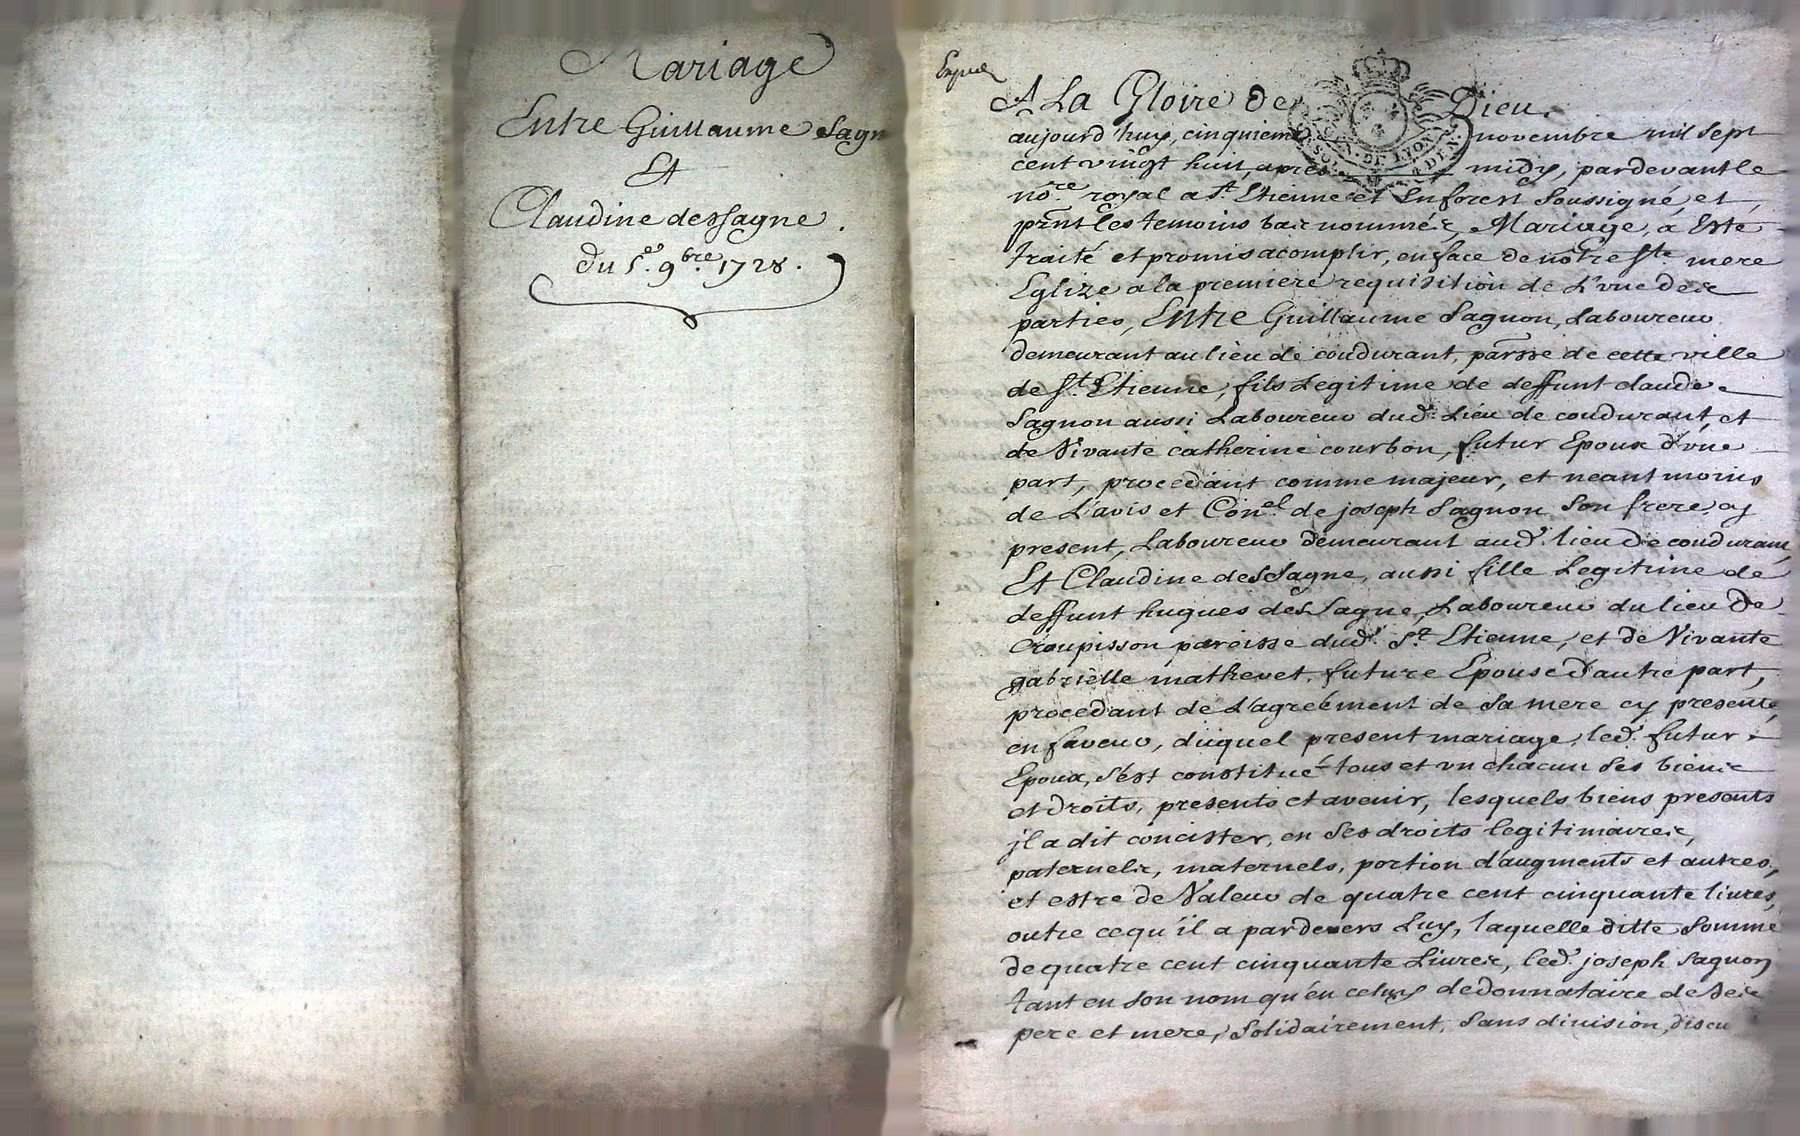 Mariage
Entre Guillaume Sagn
Et
Claudine desSagne.
du 5e. 9bre. 1728.
A La Gloire de Dieu.
aujourd'huy, cinquieme novembre mil sept
cent vingt huit, apres midy, pardevant le
nore. royal a St. Etienne et Enforest Soussigné, et
prnt Les temoins bas nommés, Mariage, a Este
traité et promis acomplir, en face de nôtre Ste mere
Eglize a la premiere requisition de L'vne des
parties, Entre Guillaume Sagnon, Laboureur
demeurant au lieu de condurant, parsse de cette ville
de St. Etienne, fils Legitime de deffunt claude
Sagnon aussi Laboureur dud. Lieu de condurant, et
de Vivante catherine courbon, futur Epoux d'vne
part, procedant comme majeur, et neantmoins
de L'avis et Conel de joseph Sagnon Son frere, cy
present, Laboureur demeurant aud. lieu de condurant,
Et Claudine desSagne, aussi fille Legitime de
deffunt hugues desSagne, Laboureur du lieu de
Croupisson paroisse dud. St. Etienne, et de Vivante
gabrielle mathevet, future Epouse d'autre part,
procedant de L'agreément de Sa mere cy presente,
en faveur, duquel present mariage, led. futur
Epoux, s'est constitué tous et vn chacun Ses biens
et droits, presents et avenir, lesquels biens presents
jl a dit concister, en Ses droits legitimaires,
paternels, maternels, portion d'augments et autres,
et estre de Valeur de quatre cent cinquante livres,
outre cequ'il a pardevers Luy, laquelle ditte Somme
de quatre cent cinquante Livres, led. joseph Sagnon
tant en son nom qu'en celuy de donnataire de Ses
pere et mere, Solidairement, Sans division, discu